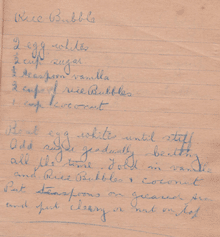 Rice Bubble
2 egg whites
½ cup sugar
½ teaspoon vanilla
2 cups of rice Bubbles
1 cup coconut
Beat egg white until stiff
Add sugar gradually beating
all the time. Fold in vanilla
and Rice Bubbles + coconut
Put teaspoons on greaser
and put cherry or nut on top